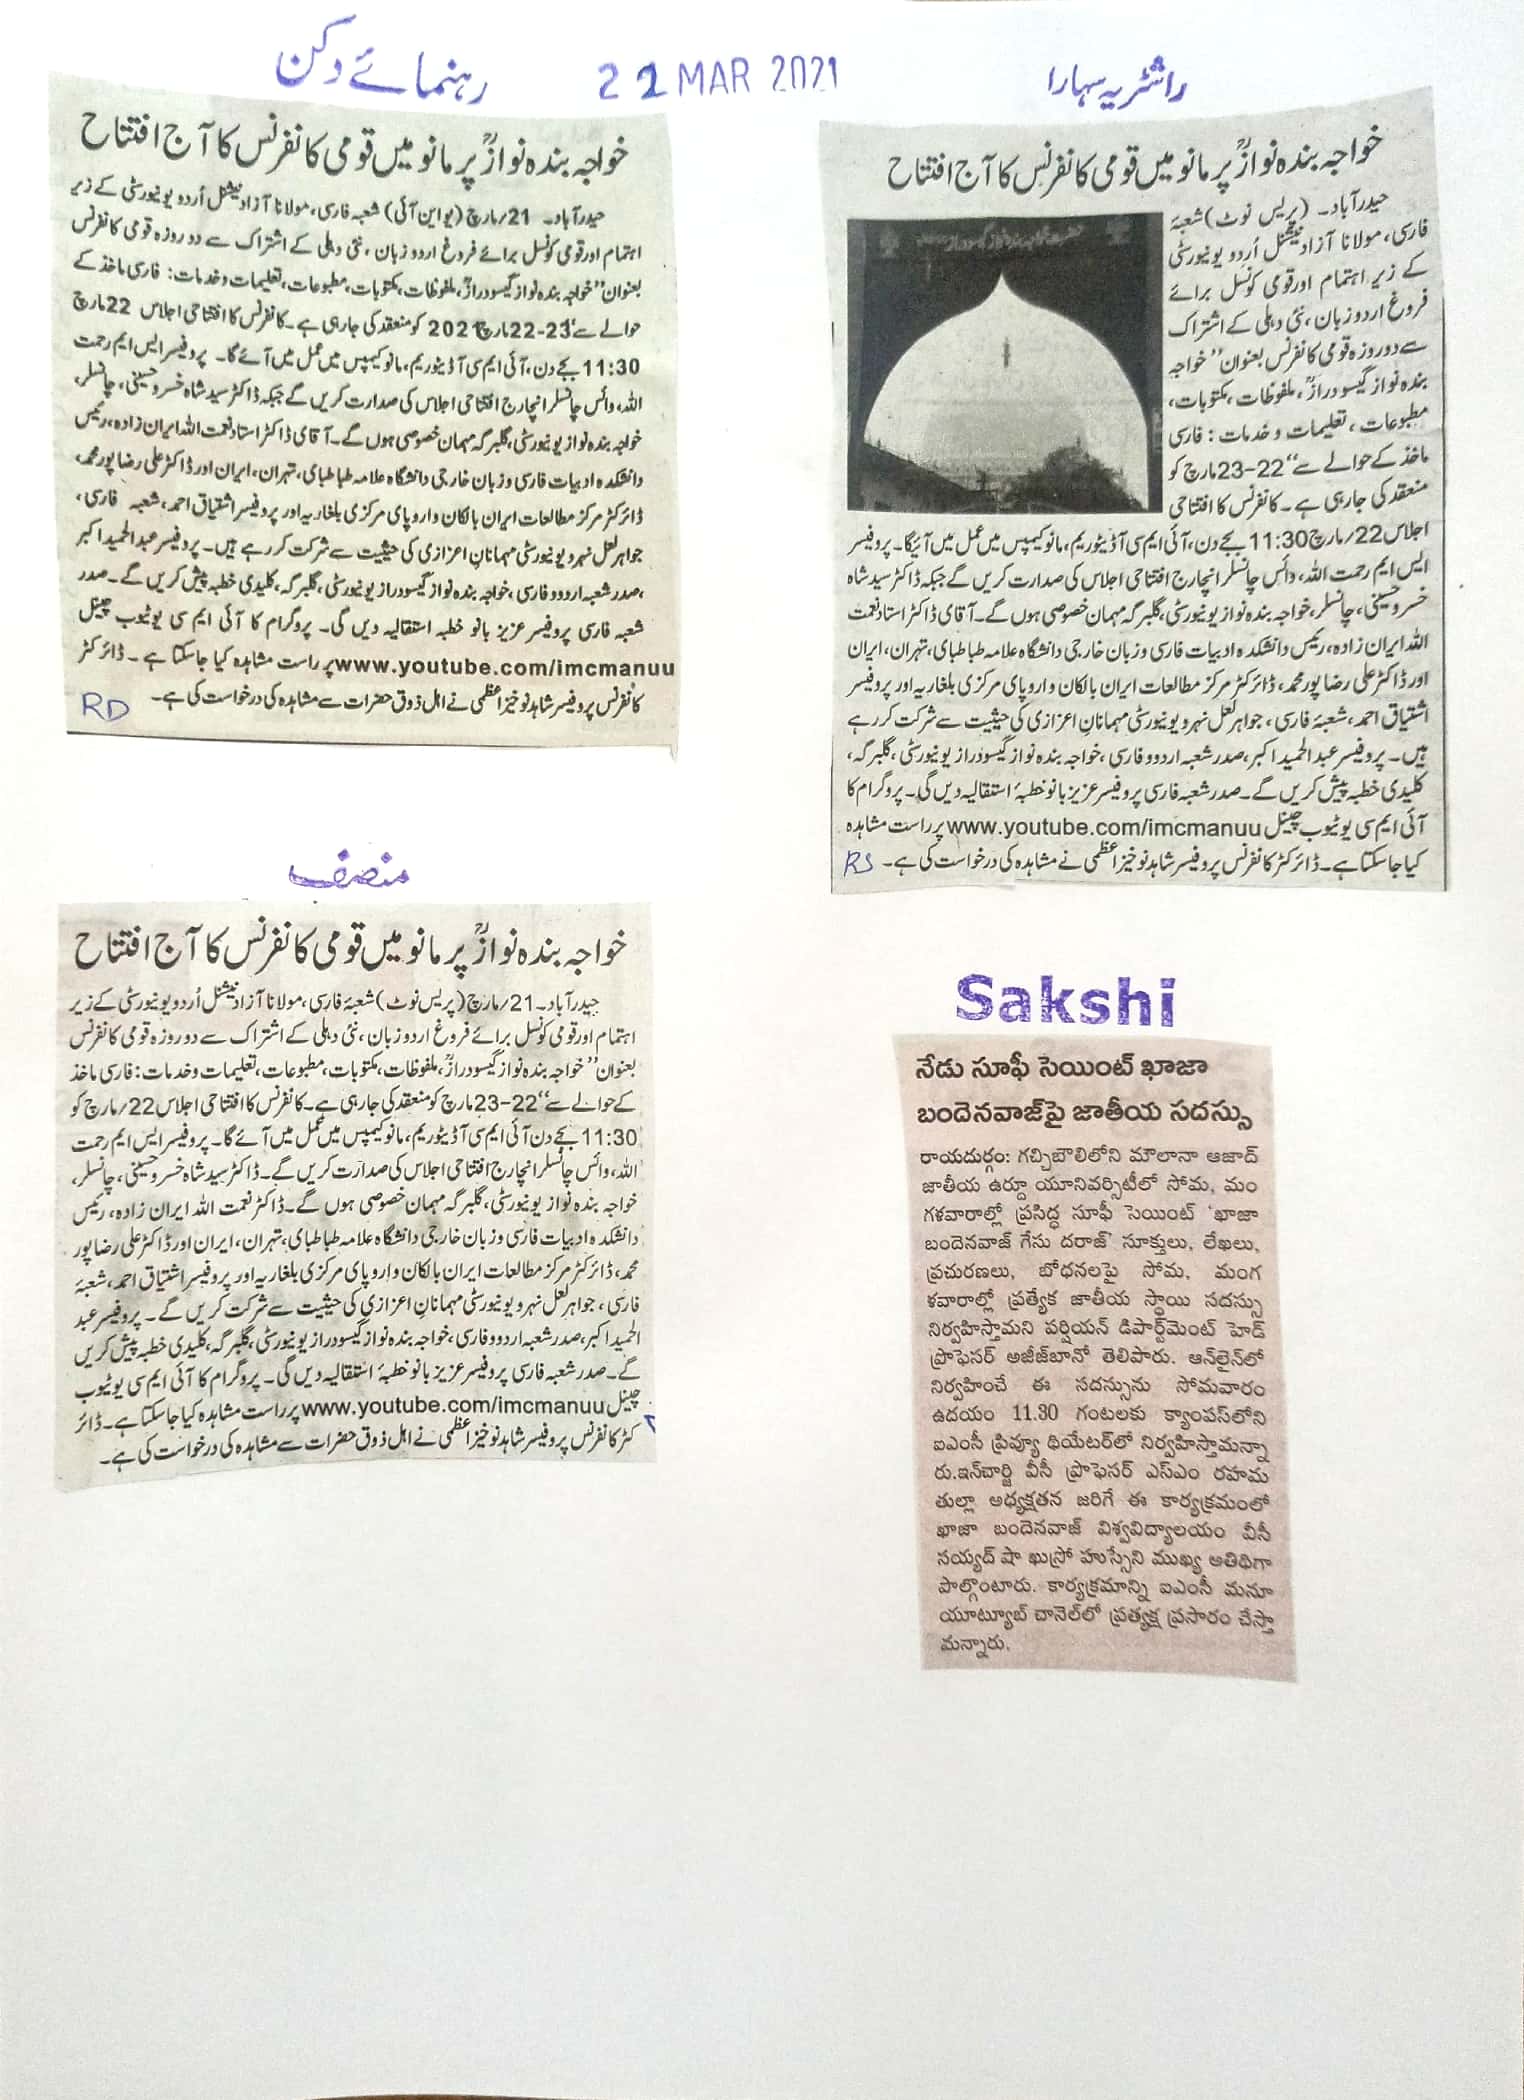 رہنمائے دکن
22 MAR 2021
راشٹریہ سہارا
خواجہ بندہ نوازؒ پر مانو میں قومی کانفرنس کا آج افتتاح
حیدرآباد۔ 21/مارچ (یو این آئی) شعبہ فارسی، مولانا آزاد نیشنل اُردو یونیورسٹی کے زیر
اہتمام اور قومی کونسل برائے فروغ اردو زبان، نئی دہلی کے اشتراک سے دو روزہ قومی کانفرنس
بعنوان ”خواجہ بندہ نواز گیسودرازؒ، ملفوظات، مکتوبات، مطبوعات، تعلیمات وخدمات: فارسی ماخذ کے
حوالے سے“ 23-22 مارچ 2021 کو منعقد کی جارہی ہے۔ کانفرنس کا افتتاحی اجلاس 22 مارچ
11:30 بجے دن، آئی ایم سی آڈیٹوریم، مانو کیمپس میں عمل میں آئے گا۔ پروفیسر ایس ایم رحمت
اللہ، وائس چانسلر انچارج افتتاحی اجلاس کی صدارت کریں گے جبکہ ڈاکٹر سید شاہ خسرو حسینی، چانسلر،
خواجہ بندہ نواز یونیورسٹی، گلبرگہ مہمان خصوصی ہوں گے۔ آقای ڈاکٹر استاد نعمت اللہ ایران زادہ، رئیس
دانشکدہ ادبیات فارسی و زبان خارجی دانشگاہ علامہ طباطبای، تہران، ایران اور ڈاکٹر علی رضا پور محمد،
ڈائرکٹر مرکز مطالعات ایران بالکان و اروپای مرکزی بلغاریہ اور پروفیسر اشتیاق احمد، شعبہ فارسی،
جواہر لعل نہرو یونیورسٹی مہمانانِ اعزازی کی حیثیت سے شرکت کر رہے ہیں۔ پروفیسر عبدالحمید اکبر
،صدر شعبہ اردو و فارسی، خواجہ بندہ نواز گیسودراز یونیورسٹی، گلبرگہ، کلیدی خطبہ پیش کریں گے۔ صدر
شعبہ فارسی پروفیسر عزیز بانو خطبہ استقبالیہ دیں گی۔ پروگرام کا آئی ایم سی یوٹیوب چینل
www.youtube.com/imcmanuu پر راست مشاہدہ کیا جاسکتا ہے۔ ڈائرکٹر
کانفرنس پروفیسر شاہد نوخیز اعظمی نے اہل ذوق حضرات سے مشاہدہ کی درخواست کی ہے۔
RD
خواجہ بندہ نوازؒ پر مانو میں قومی کانفرنس کا آج افتتاح
حیدرآباد۔ (پریس نوٹ) شعبۂ
فارسی، مولانا آزاد نیشنل اُردو یونیورسٹی
کے زیر اہتمام اور قومی کونسل برائے
فروغ اردو زبان، نئی دہلی کے اشتراک
سے دو روزہ قومی کانفرنس بعنوان ”خواجہ
بندہ نواز گیسودرازؒ، ملفوظات، مکتوبات،
مطبوعات، تعلیمات و خدمات: فارسی
ماخذ کے حوالے سے“ 22-23 مارچ کو
منعقد کی جارہی ہے۔ کانفرنس کا افتتاحی
اجلاس 22/مارچ 11:30 بجے دن، آئی ایم سی آڈیٹوریم، مانو کیمپس میں عمل میں آئیگا۔ پروفیسر
ایس ایم رحمت اللہ، وائس چانسلر انچارج افتتاحی اجلاس کی صدارت کریں گے جبکہ ڈاکٹر سید شاہ
خسرو حسینی، چانسلر، خواجہ بندہ نواز یونیورسٹی، گلبرگہ مہمان خصوصی ہوں گے۔ آقای ڈاکٹر استاد نعمت
اللہ ایران زادہ، رئیس دانشکدہ ادبیات فارسی و زبان خارجی دانشگاہ علامہ طباطبای، تہران، ایران
اور ڈاکٹر علی رضا پور محمد، ڈائرکٹر مرکز مطالعات ایران بالکان و اروپای مرکزی بلغاریہ اور پروفیسر
اشتیاق احمد، شعبۂ فارسی، جواہر لعل نہرو یونیورسٹی مہمانانِ اعزازی کی حیثیت سے شرکت کر رہے
ہیں۔ پروفیسر عبدالحمید اکبر، صدر شعبہ اردو و فارسی، خواجہ بندہ نواز گیسودراز یونیورسٹی، گلبرگہ،
کلیدی خطبہ پیش کریں گے۔ صدر شعبہ فارسی پروفیسر عزیز بانو خطبۂ استقبالیہ دیں گی۔ پروگرام کا
آئی ایم سی یوٹیوب چینل www.youtube.com/imcmanuu پر راست مشاہدہ
کیا جاسکتا ہے۔ ڈائرکٹر کانفرنس پروفیسر شاہد نوخیز اعظمی نے مشاہدہ کی درخواست کی ہے۔
RS
منصف
خواجہ بندہ نوازؒ پر مانو میں قومی کانفرنس کا آج افتتاح
حیدرآباد۔ 21/مارچ (پریس نوٹ) شعبۂ فارسی، مولانا آزاد نیشنل اُردو یونیورسٹی کے زیر
اہتمام اور قومی کونسل برائے فروغ اردو زبان، نئی دہلی کے اشتراک سے دو روزہ قومی کانفرنس
بعنوان ”خواجہ بندہ نواز گیسودرازؒ، ملفوظات، مکتوبات، مطبوعات، تعلیمات وخدمات: فارسی ماخذ
کے حوالے سے“ 22-23 مارچ کو منعقد کی جارہی ہے۔ کانفرنس کا افتتاحی اجلاس 22/مارچ کو
11:30 بجے دن آئی ایم سی آڈیٹوریم، مانو کیمپس میں عمل میں آئے گا۔ پروفیسر ایس ایم رحمت
اللہ، وائس چانسلر انچارج افتتاحی اجلاس کی صدارت کریں گے۔ ڈاکٹر سید شاہ خسرو حسینی، چانسلر،
خواجہ بندہ نواز یونیورسٹی، گلبرگہ مہمان خصوصی ہوں گے۔ ڈاکٹر نعمت اللہ ایران زادہ، رئیس
دانشکدہ ادبیات فارسی و زبان خارجی دانشگاہ علامہ طباطبای، تہران، ایران اور ڈاکٹر علی رضا پور
محمد، ڈائرکٹر مرکز مطالعات ایران بالکان و اروپای مرکزی بلغاریہ اور پروفیسر اشتیاق احمد، شعبۂ
فارسی، جواہر لعل نہرو یونیورسٹی مہمانانِ اعزازی کی حیثیت سے شرکت کریں گے۔ پروفیسر عبد
الحمید اکبر، صدر شعبہ اردو و فارسی، خواجہ بندہ نواز گیسودراز یونیورسٹی، گلبرگہ، کلیدی خطبہ پیش کریں
گے۔ صدر شعبہ فارسی پروفیسر عزیز بانو خطبۂ استقبالیہ دیں گی۔ پروگرام کا آئی ایم سی یوٹیوب
چینل www.youtube.com/imcmanuu پر راست مشاہدہ کیا جاسکتا ہے۔ ڈائر
کٹر کانفرنس پروفیسر شاہد نوخیز اعظمی نے اہل ذوق حضرات سے مشاہدہ کی درخواست کی ہے۔
Sakshi
నేడు సూఫీ సెయింట్ ఖాజా
బందెనవాజ్‌పై జాతీయ సదస్సు
రాయదుర్గం: గచ్చిబౌలిలోని మౌలానా ఆజాద్
జాతీయ ఉర్దూ యూనివర్సిటీలో సోమ, మం
గళవారాల్లో ప్రసిద్ధ సూఫీ సెయింట్ 'ఖాజా
బందెనవాజ్ గేసు దరాజ్' సూక్తులు, లేఖలు,
ప్రచురణలు, బోధనలపై సోమ, మంగ
ళవారాల్లో ప్రత్యేక జాతీయ స్థాయి సదస్సు
నిర్వహిస్తామని పర్షియన్ డిపార్ట్‌మెంట్ హెడ్
ప్రొఫెసర్ అజీజ్‌బానో తెలిపారు. ఆన్‌లైన్‌లో
నిర్వహించే ఈ సదస్సును సోమవారం
ఉదయం 11.30 గంటలకు క్యాంపస్‌లోని
ఐఎంసీ ప్రివ్యూ థియేటర్‌లో నిర్వహిస్తామన్నా
రు.ఇన్‌చార్జి వీసీ ప్రొఫెసర్ ఎస్ఎం రహమ
తుల్లా అధ్యక్షతన జరిగే ఈ కార్యక్రమంలో
ఖాజా బందెనవాజ్ విశ్వవిద్యాలయం వీసీ
సయ్యద్ షా ఖుస్రో హుస్సేని ముఖ్య అతిథిగా
పాల్గొంటారు. కార్యక్రమాన్ని ఐఎంసీ మనూ
యూట్యూబ్ చానెల్‌లో ప్రత్యక్ష ప్రసారం చేస్తా
మన్నారు.